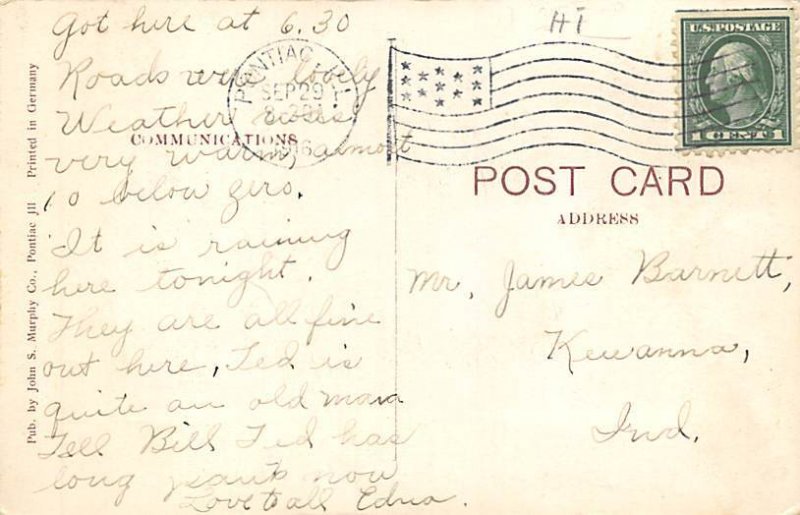 Got here at 6.30
Roads were lovely
Weather was
very warm, almost
10 below zero.
It is raining
here tonight.
They are all fine
out here, Ted is
quite an old man
Tell Bill Ted has
long pants now
Love to all Edna.
COMMUNICATIONS
Pub. by John S. Murphy Co., Pontiac Jll Printed in Germany
PONTIAC
SEP 29
HI
U.S. POSTAGE
1 CENT 1
POST CARD
ADDRESS
Mr. James Barnett,
Kewanna,
Ind.